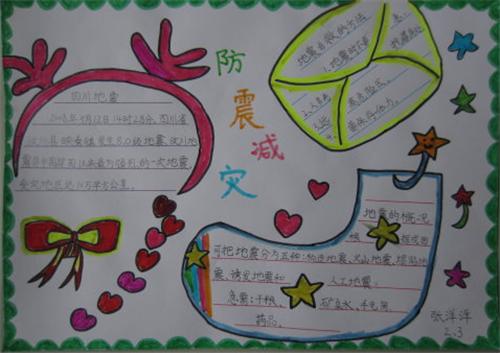 防震减灾
四川地震
2008年5月12日14时28分,四川省
汶川县映秀镇发生8.0级地震,汶川地
震是中国建国以来最为强烈的一次地震,
受灾地达10万平方公里。
地震自救的方法
1.地震时不要
地震的概况
可把地震分为五种:构造地震、火山地震、塌陷地
震、诱发地震和人工地震。
急需:干粮、矿泉水、手电筒
药品。
张洋洋
2.3